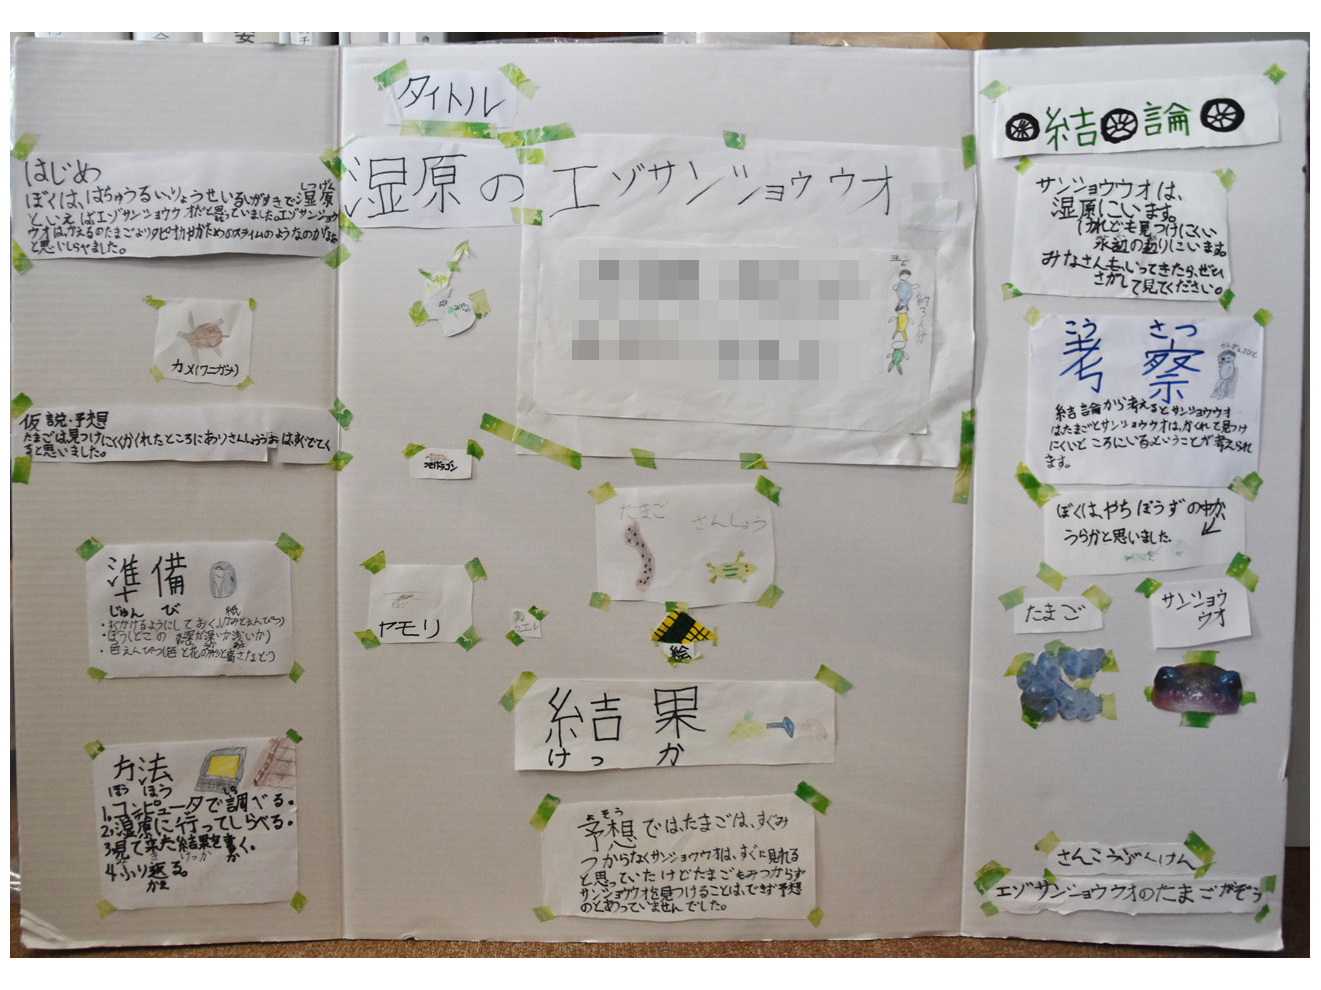 タイトル
湿原の エゾサンショウウオ
はじめ
ぼくは、はちゅうるいりょうせいるいがすきで湿原
しつげん
といえばエゾサンショウウオだと思っていました。エゾサンショウ
ウオは、かえるのたまごよりタピオカやかためのスライムのようなのかなぁ
と思いしらべました。
カメ(ワニガメ)
仮説・予想
たまごは見つけにくくかくれたところにありさんしょううおはすぐでてく
ると思いました。
準備
じゅん び
紙
・わかるようにしておく。(かみとえんぴつ)
・ぼうし(どこの 水深が深いか浅いか)
・色えんぴつ(色と花の形と高さなどう)
方法
ほう ほう
1.コンピュータで調べる。
2.湿原に行ってしらべる。
3.見て来た結果を書く。
けっか か
4.ふり返る。
かえ
ヨコ
約3人分
コモドドラゴン
たまご さんしょう
ヤモリ
カエル
絵
結果
けっ か
よそう
予想ではたまごは、すぐみ
つからなくサンショウウオは、すぐに見れる
と思っていたけどたまごもみつからず
サンショウウオを見つけることは、できず予想
のとあっていませんでした。
結論
サンショウウオは、
湿原にいます。
けれども見つけにくい
水辺の辺りにいます。
みなさんも、いってきたら、ぜひ
さがして見てください。
こう さつ
考察
結論から考えるとサンショウウオ
はたまごとサンショウウオは、かくれて見つけ
にくいところにいる。ということが考えられ
ます。
ぼくは、やちぼうずの中か、
うらかと思いました。
たまご
サンショウ
ウオ
さんこうぶんけん
エゾサンショウウオのたまごがぞう